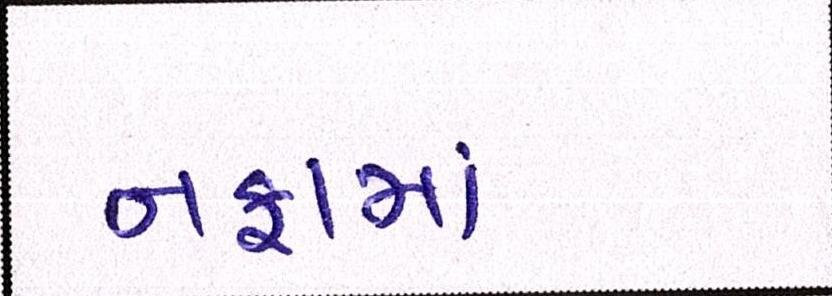 નફામાં